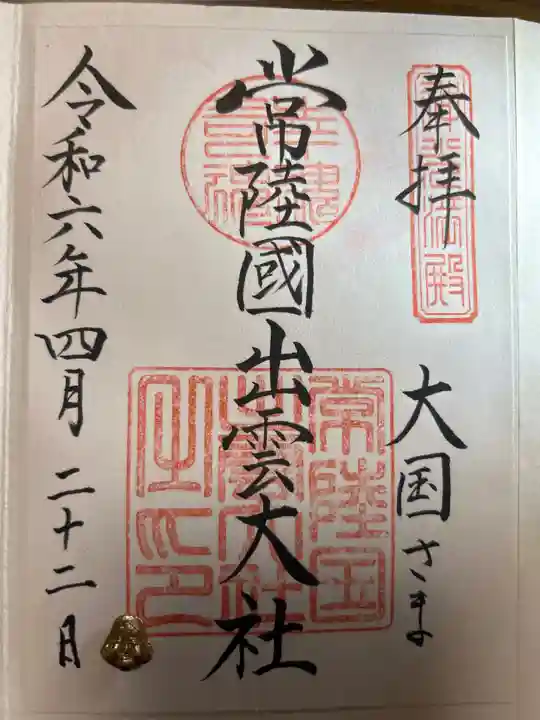 奉拝
大国さま
常陸國出雲大社
常陸国
出雲大社
之印
令和六年四月二十二日